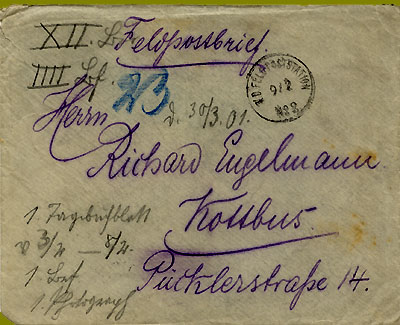 XII. Brf. Feldpostbrief.
IIII Brf.
23
K.D. FELD-POSTSTATION
9/2
No 2
d. 30/3. 01.
Herrn
Richard Engelmann
Kottbus.
Pücklerstraße 14.
1. Tagebuchblatt
v 3/2 – 8/2.
1. Brf
1. Photograph